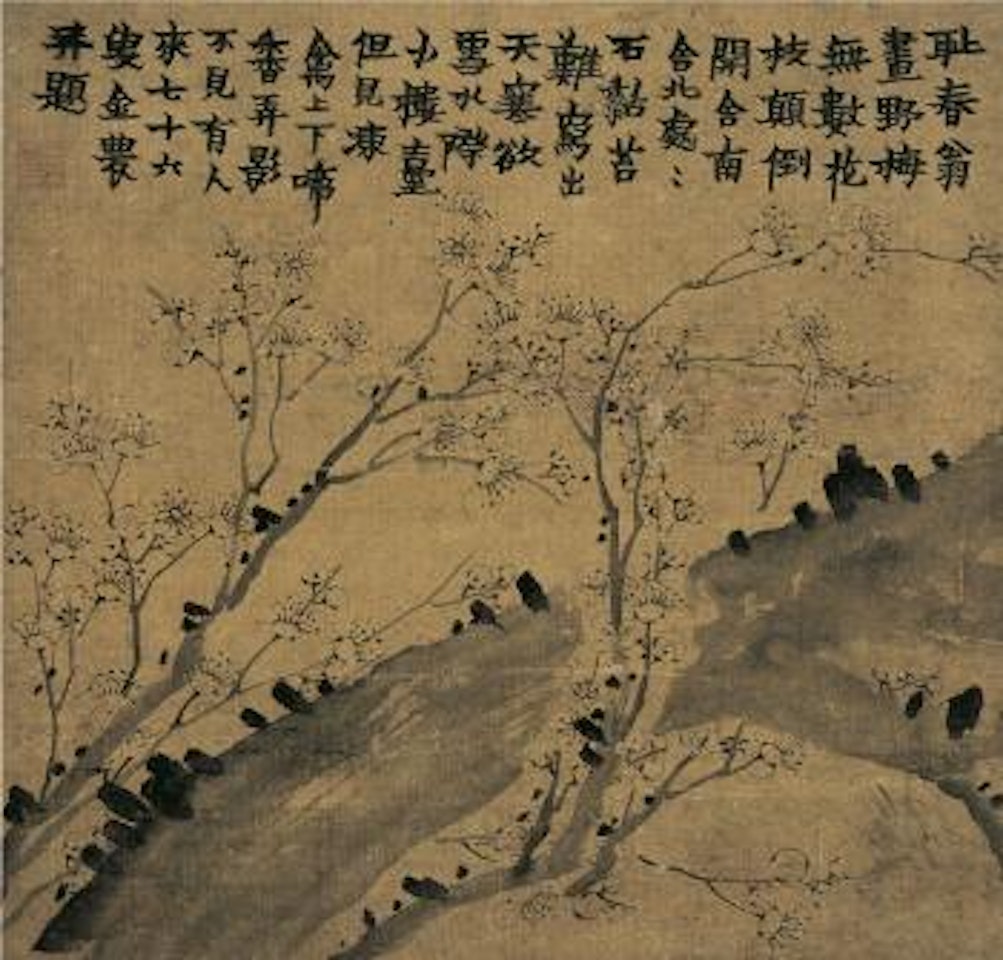 耻春翁
畫野梅
無數花
枝顛倒
開舍南
舍北處〻
石黏苔
難寫出
天寒欲
雪水際
小樓臺
但見凍
禽上下啼
香弄影
不見有人
來七十六
叟金農
并題